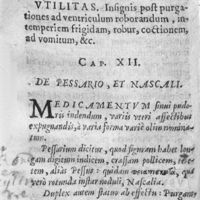 VTILITAS. Insignis post purga-
tiones ad ventriculum roborandum, in-
temperiem frigidam, robur, coctionem,
ad vomitum, &c.
CAP. XII.
DE PESSARIO, ET NASCALI.
MEDICAMENTVM sinui pudo-
ris indendum, variis uteri affectibus
expugnandis, à varia forma variè olim nomina-
tum.
Pessarium dicitur, quod signam habet lon-
gam digitum indicem, crassam pollicem,
tem, alias Pessus:
verò rotunda instar noduli, Nascalia.
Duplex autem statuo ab effectu: Purgans